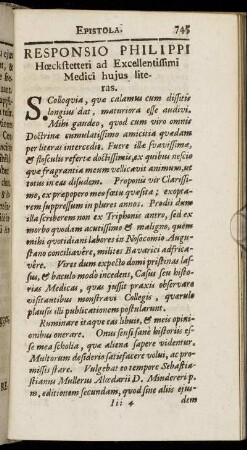 EPISTOLA. 745
RESPONSIO PHILIPPI
Hœckstetteri ad Excellentissimi
Medici hujus lite-
ras.
SColloquia, quæ calamus cum dissitis
longius dat, maturiora esse audivi.
Mihi gaudeo, quod cum viro omnis
Doctrinæ cumulatissimo amicitia quædam
per literas intercedit. Fuere illæ suavissimæ,
& flosculis refertæ doctissimis, ex quibus nescio
quæ fragrantia meum vellicavit animum, ut
totus in eas disudem. Proponis vir Clarissi-
me, ex præpopero meo fœtu quæsita; exopta-
rem suppressum in plures annos. Prodii dum
illa scriberem non ex Triphonis antro, sed ex
morbo quodam acutissimo & maligno, quem
mihi quotidiani labores in Nosocomio Augu-
stano conciliavêre, milites Bavarici adfrica-
vêre. Vires dum expecto domi pristinas las-
sus, & baculo modo incedens, Casus seu histo-
rias Medicas, quas jussit praxis observare
visitantibus monstravi Collegis, quærulo
plausu illi publicationem postularunt.
Ruminare itaque eas libuit, & meis opini-
onibus onerare. Onus sensi sane historiis es-
se mea scholia, quæ aliena sapere videntur.
Multorum desiderio satisfacere volui, ac pro-
missis stare. Vulgebat eo tempore Sebastia-
stianus Mullerus Alœdarii D. Mindereri p.
m, editionem secundam, quod sine aliis ejus-
Iii 4 dem